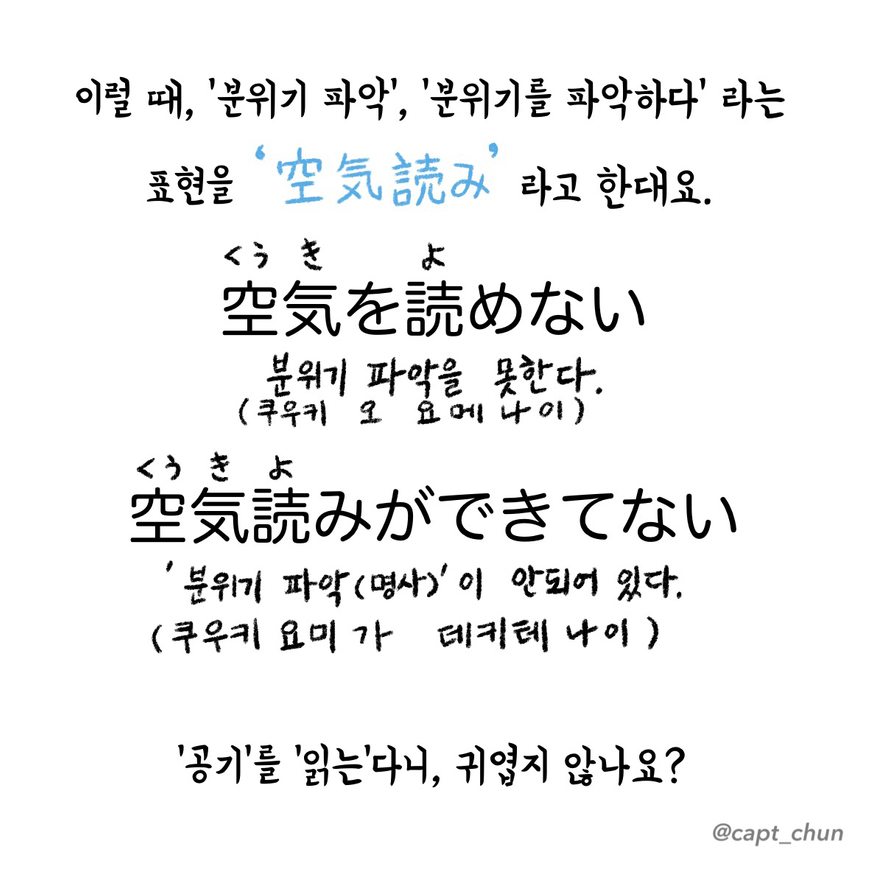 이럴 때, '분위기 파악', '분위기를 파악하다' 라는
표현을 '空気読み' 라고 한대요.
くう き よ
空気を読めない
분위기 파악을 못한다.
(쿠우키 오 요메나이)
くう き よ
空気読みができてない
'분위기 파악(명사)'이 안되어 있다.
(쿠우키 요미 가 데키테나이)
'공기'를 '읽는'다니, 귀엽지 않나요?
@capt_chun